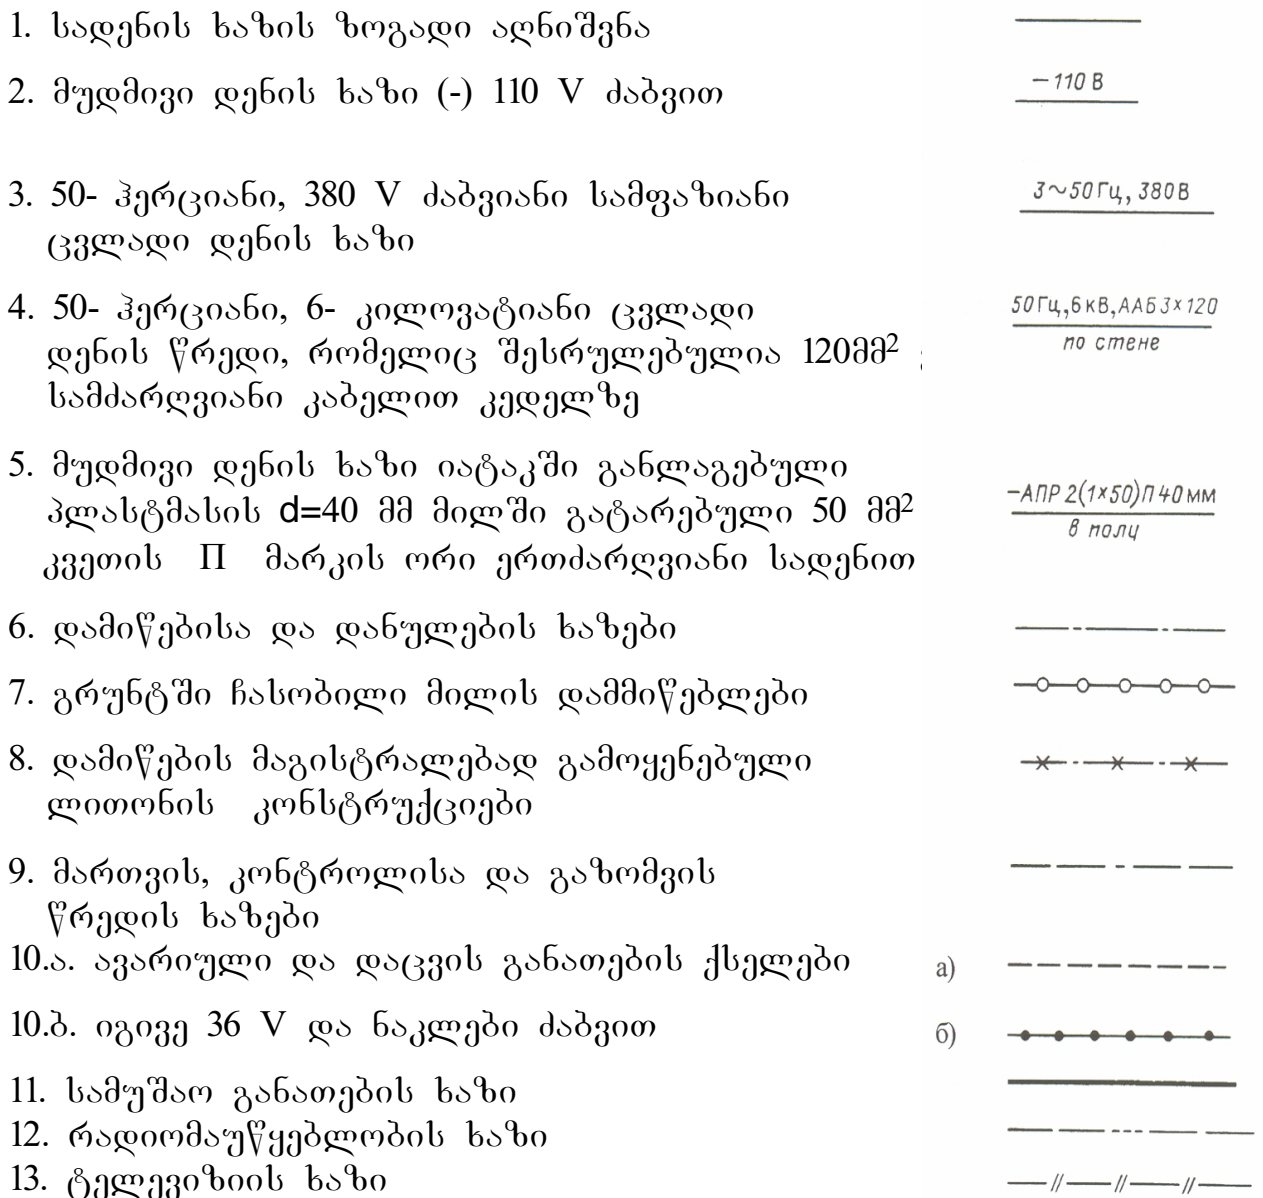 1. სადენის ხაზის ზოგადი აღნიშვნა
2. მუდმივი დენის ხაზი (-) 110 V ძაბვით
– 110 В
3. 50- ჰერციანი, 380 V ძაბვიანი სამფაზიანი
ცვლადი დენის ხაზი
3~50 Гц, 380 В
4. 50- ჰერციანი, 6- კილოვატიანი ცვლადი
დენის წრედი, რომელიც შესრულებულია 120მმ²
სამძარღვიანი კაბელით კედელზე
50 Гц, 6 кВ, ААБ 3×120
по стене
5. მუდმივი დენის ხაზი იატაკში განლაგებული
პლასტმასის d=40 მმ მილში გატარებული 50 მმ²
კვეთის П მარკის ორი ერთძარღვიანი სადენით
–АПР 2(1×50)П 40 мм
в полу
6. დამიწებისა და დანულების ხაზები
7. გრუნტში ჩასობილი მილის დამმიწებლები
8. დამიწების მაგისტრალებად გამოყენებული
ლითონის კონსტრუქციები
9. მართვის, კონტროლისა და გაზომვის
წრედის ხაზები
10.ა. ავარიული და დაცვის განათების ქსელები
а)
10.ბ. იგივე 36 V და ნაკლები ძაბვით
б)
11. სამუშაო განათების ხაზი
12. რადიომაუწყებლობის ხაზი
13. ტელევიზიის ხაზი